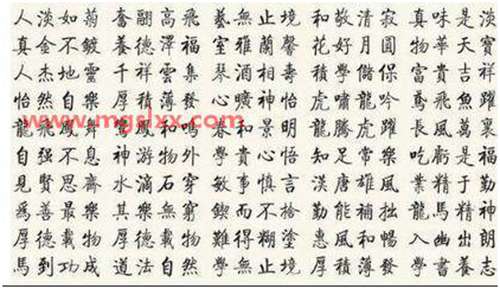 人淡如菊 奮翮高飛 藝無止境 和敬清寂 真味是淡
真金不鍍 養德澤福 室雅蘭馨 花好月圓 物華天寶
人杰地靈 千祥雲集 琴酒相壽 學儲 富貴吉祥
怡然自樂 厚積薄發 心曠神怡 虎嘯龍吟 鳶飛魚躍
龍飛鳳舞 鳳和鳴 春和景明 龍騰虎躍 長風萬里
www.mgslxx.com
自强不息 神游物外 學貴心悟 知足常樂 吃虧是福
見賢思齋 水滴石穿 敏事慎言 漢唐雄風 業精于勤
爲善最樂 其樂無窮 鍥而不捨 勤能補拙 龍馬精神
厚德載物 厚德載物 難得糊塗 惠風和暢 入幽出朗
馬到功成 道法自然 學無止境 厚積薄發 學書養志